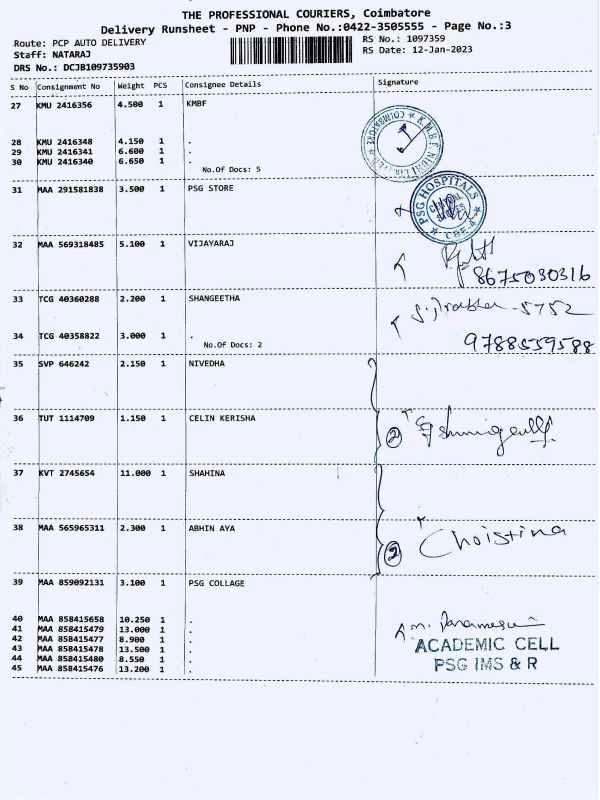 THE PROFESSIONAL COURIERS, Coimbatore
Delivery Runsheet - PNP - Phone No.:0422-3505555 - Page No.:3
Route: PCP AUTO DELIVERY
RS No.: 1097359
Staff: NATARAJ
RS Date: 12-Jan-2023
DRS No.: DCJB109735903
S No Consignment No Weight PCS Consignee Details Signature
27 KMU 2416356 4.500 1 KMBF
28 KMU 2416348 4.150 1 .
29 KMU 2416341 6.600 1 .
30 KMU 2416340 6.650 1 .
No.Of Docs: 5
31 MAA 291581838 3.500 1 PSG STORE
PSG HOSPITALS
32 MAA 569318485 5.100 1 VIJAYARAJ
8675030316
33 TCG 40360288 2.200 1 SHANGEETHA
5752
34 TCG 40358822 3.000 1 .
No.Of Docs: 2
9788559588
35 SVP 646242 2.150 1 NIVEDHA
36 TUT 1114709 1.150 1 CELIN KERISHA
2
37 KVT 2745654 11.000 1 SHAHINA
38 MAA 565965311 2.300 1 ABHIN AYA
2 Christina
39 MAA 859092131 3.100 1 PSG COLLAGE
40 MAA 858415658 10.250 1 .
41 MAA 858415479 13.000 1 .
42 MAA 858415477 8.900 1 .
43 MAA 858415478 13.500 1 .
44 MAA 858415480 8.550 1 .
45 MAA 858415476 13.200 1 .
ACADEMIC CELL
PSG IMS & R